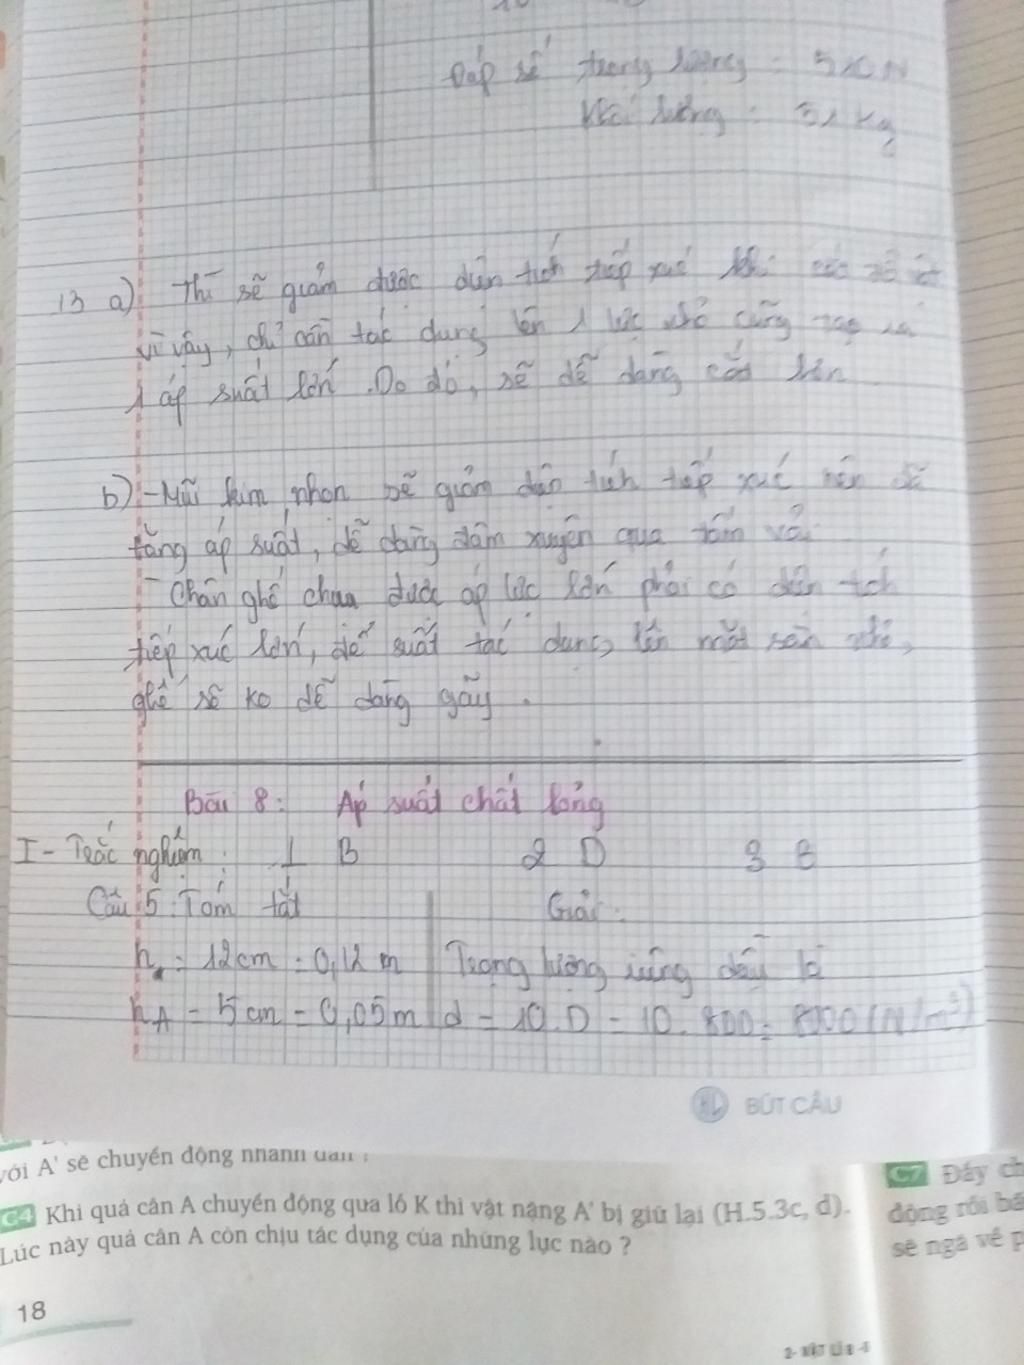 Đáp số trọng lượng: 510N
Khối lượng: 51 kg
13 a) Thì sẽ giảm được diện tích tiếp xúc khi
vì vậy, chỉ cần tác dụng lên 1 lực nhỏ cũng tạo ra
1 áp suất lớn. Do đó, sẽ dễ dàng cắt hơn
b) - Mũi kim nhọn sẽ giảm diện tích tiếp xúc nên sẽ
tăng áp suất, dễ dàng đâm xuyên qua tấm vải
- Chân ghế chịu được áp lực lớn phải có diện tích
tiếp xúc lớn, để suất tác dụng lên mặt sàn nhỏ,
ghế sẽ ko dễ dàng gãy.
Bài 8: Áp suất chất lỏng
I - Trắc nghiệm: 1 B 2 D 3 B
Câu 5: Tóm tắt Giải:
h = 12cm = 0,12 m Trọng lượng riêng dầu là
hA = 5cm = 0,05m d = 10.D = 10.800 = 8000 (N/m³)
BÚT CÂU
với A' sẽ chuyển động nhanh dần
C4 Khi quả cân A chuyển động qua lỗ K thì vật nặng A' bị giữ lại (H.5.3c, d).
Lúc này quả cân A còn chịu tác dụng của những lực nào ?
18
C7 Đẩy ch
động rồi bấ
sẽ ngã về p